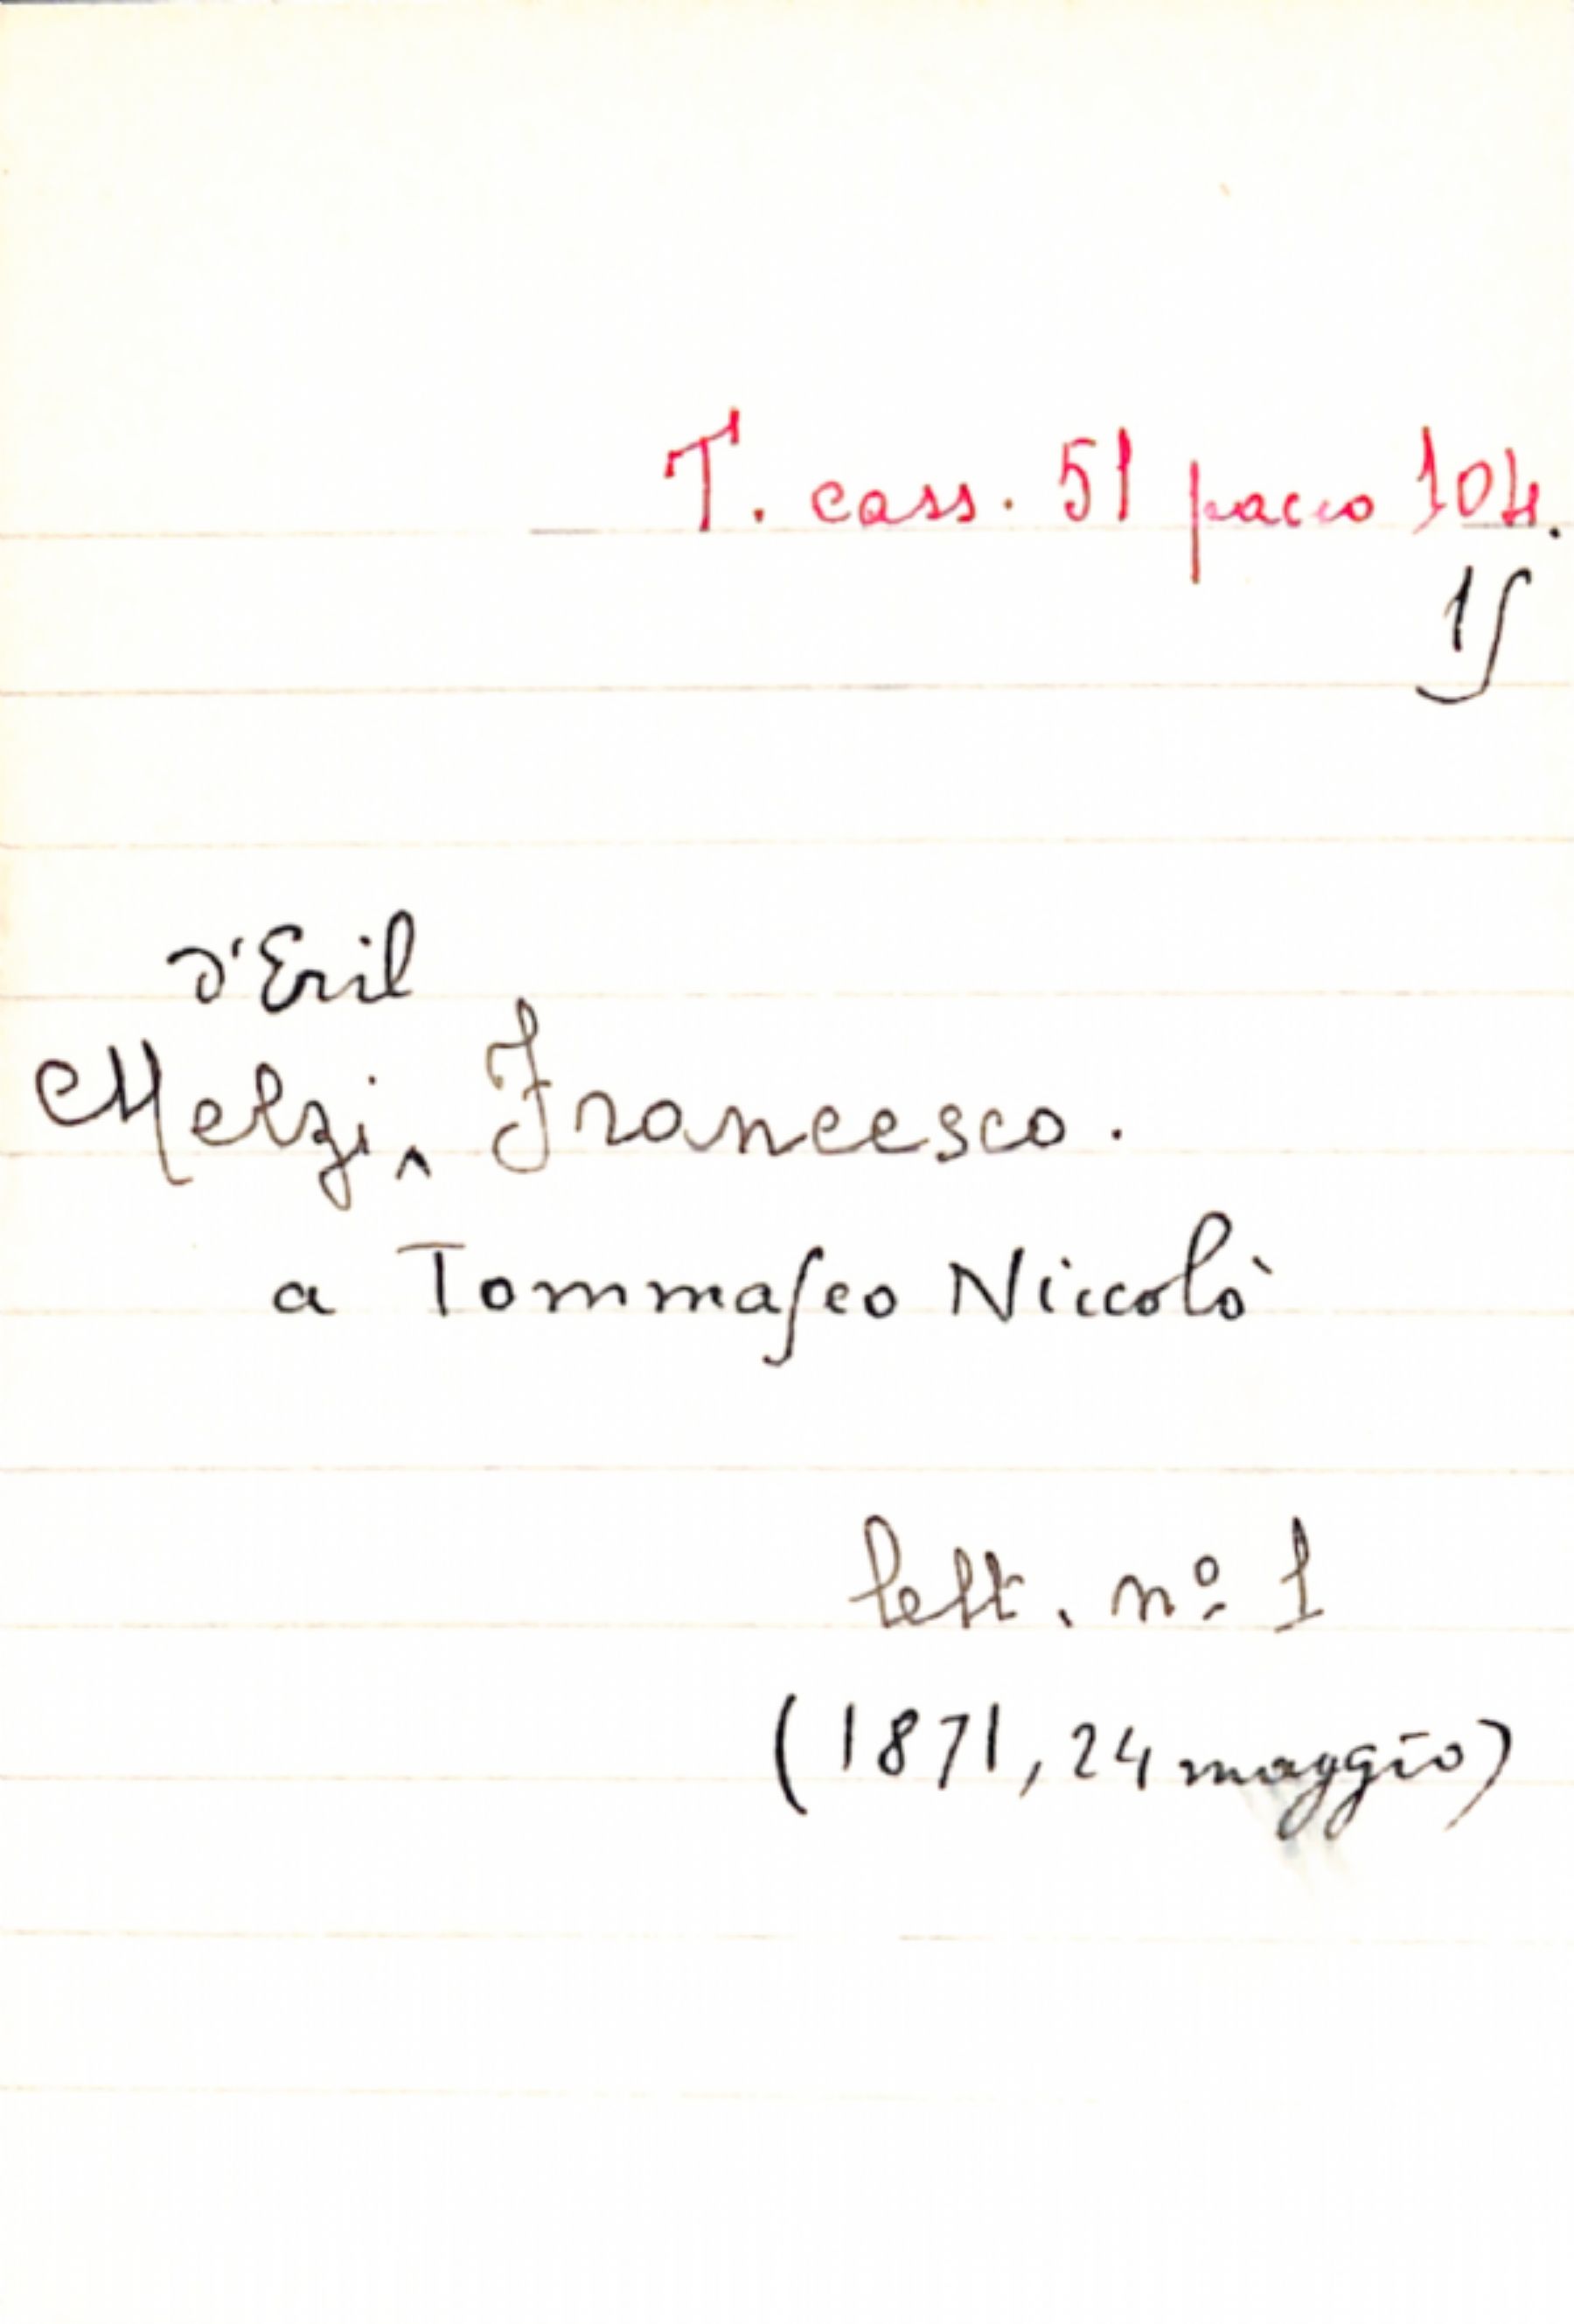 T. cass. 51 pacco 104.
15
d'Eril
Melzi ‸ Francesco.
a Tommaseo Niccolò
lett. nº 1
(1871, 24 maggio)